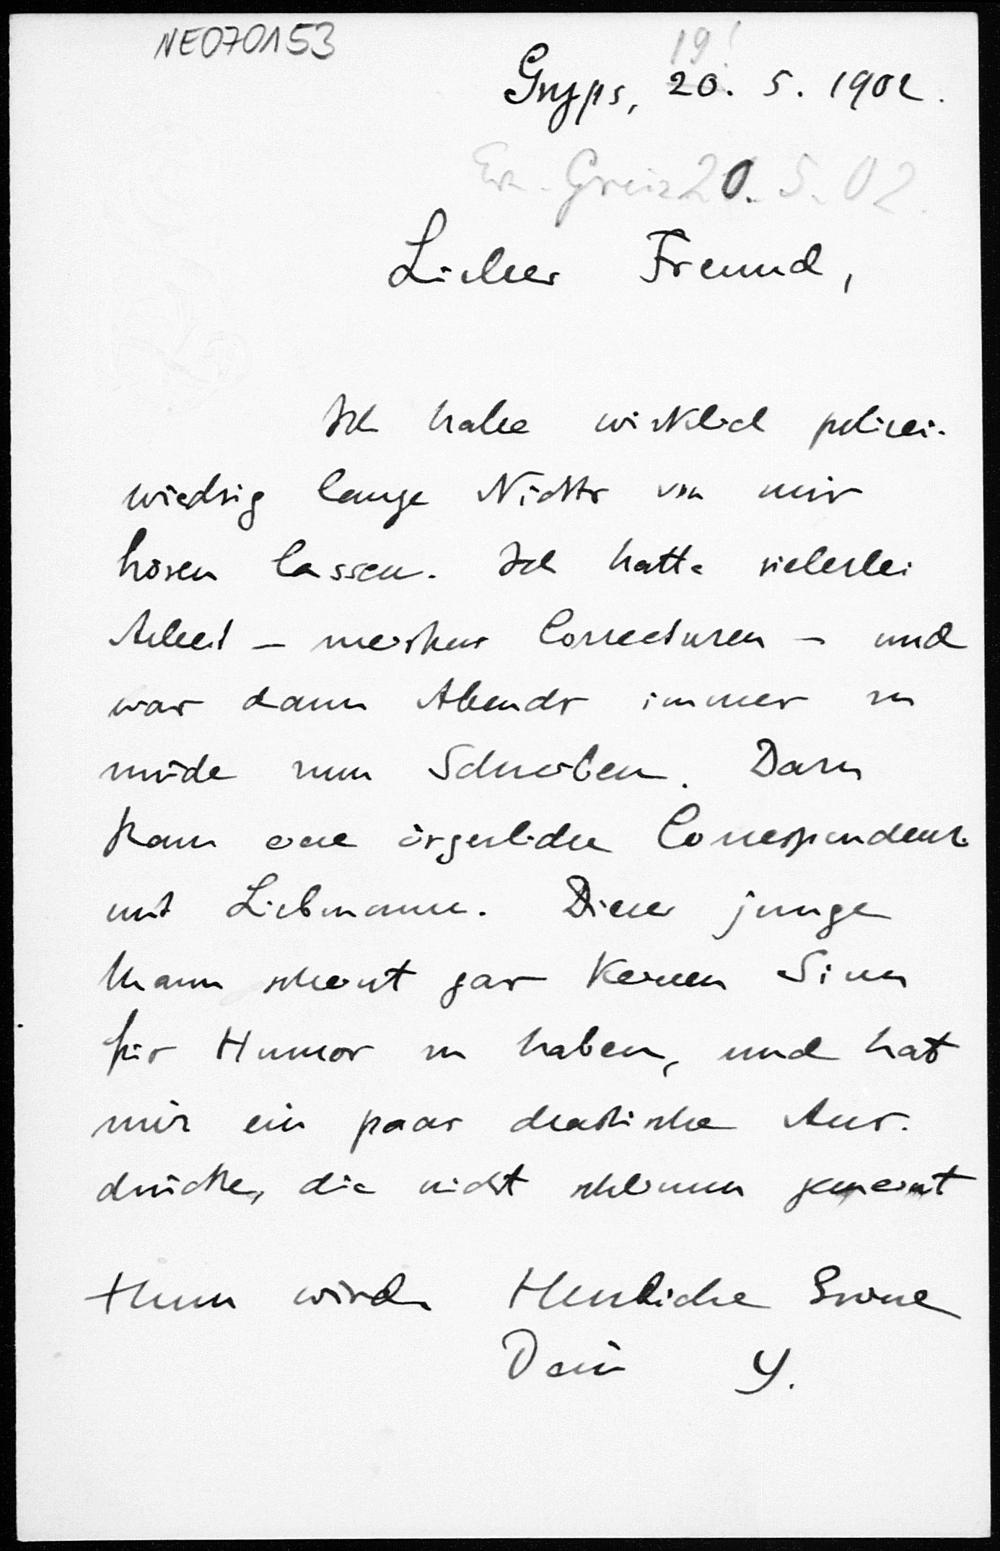 NE070153
19!
Gryps, 20. 5. 1902.
Erh. Greiz 20. 5. 02.
Lieber Freund,
Ich habe wirklich polizei-
wiedrig lange Nichts von mir
hören lassen. Ich hatte vielerlei
Arbeit – meistens Correcturen – und
war dann Abends immer zu
müde zum Schreiben. Dazu
kam eine ärgerliche Correspondenz
mit Liebmann. Dieser junge
Mann scheint gar keinen Sinn
für Humor zu haben, und hat
mir ein paar drastische Aus-
drücke, die nicht schlimm gemeint
thun wird. Herzliche Grüsse
Dein Y.